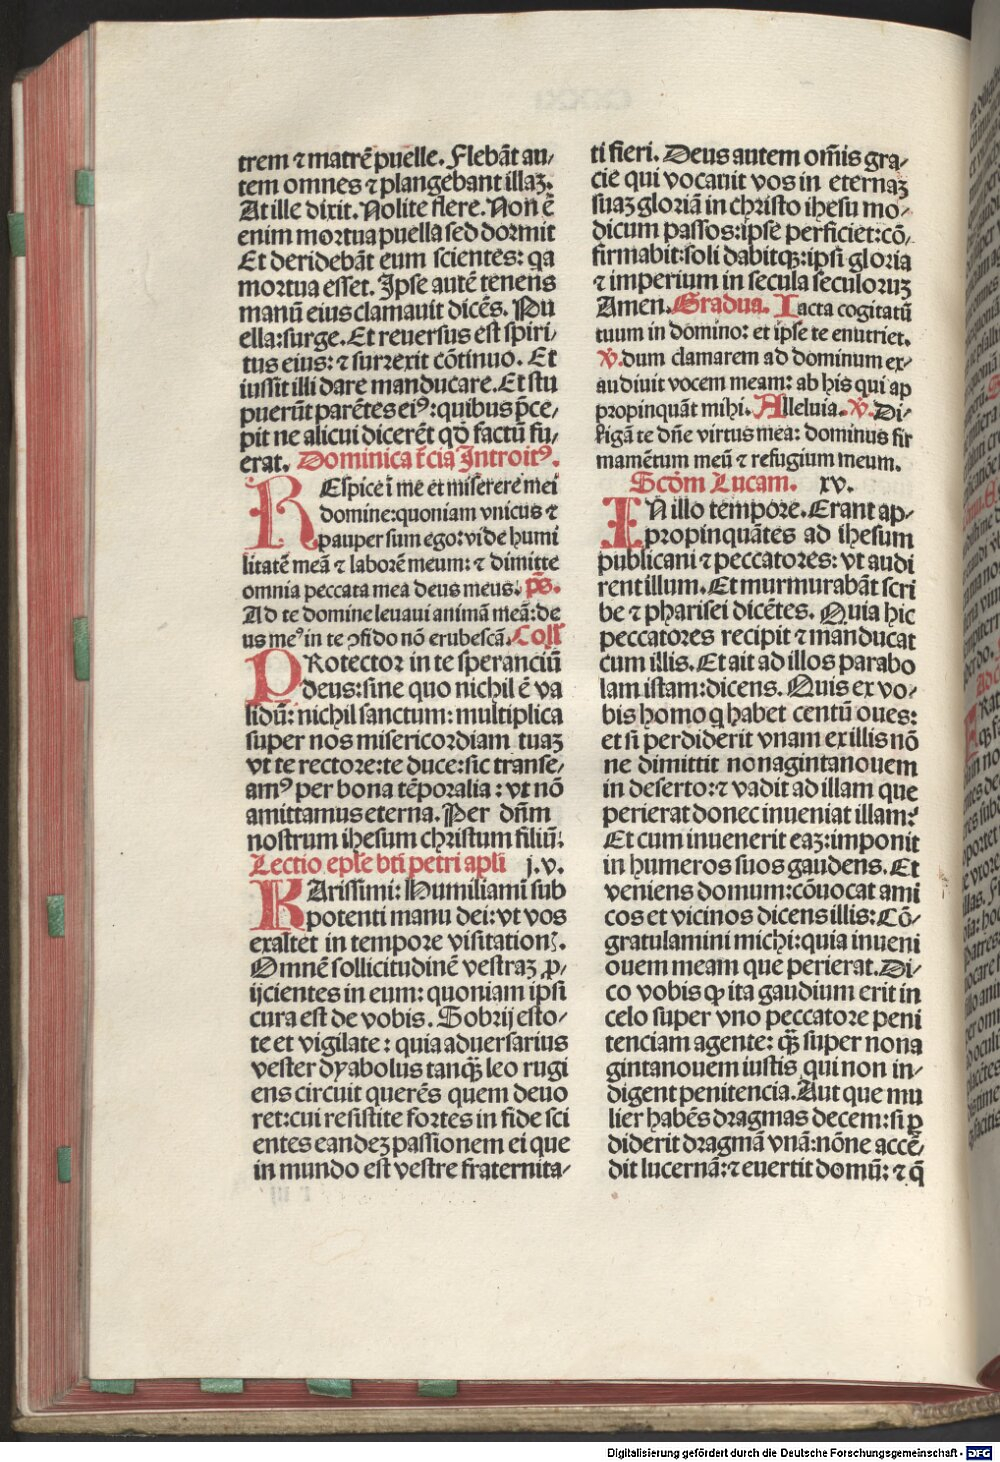 trem ⁊ matrē puelle. Flebāt au-
tem omnes ⁊ plangebant illaꝫ.
At ille dixit. Nolite flere. Non ē
enim mortua puella sed dormit
Et deridebāt eum scientes: qa
mortua esset. Ipse autē tenens
manū eius clamauit dicēs. Pu
ella: surge. Et reuersus est spiri-
tus eius: ⁊ surrexit cōtinuo. Et
iussit illi dare manducare. Et stu
puerūt parētes eiꝰ: quibus p̄ce-
pit ne alicui dicerēt qd̓ factū fu-
erat. Dominica t̄cia Introitꝰ.
REspice ī me et miserere mei
domine: quoniam vnicus ⁊
pauper sum ego: vide humi
litatē meā ⁊ laborē meum: ⁊ dimitte
omnia peccata mea deus meus. p̄s.
Ad te domine leuaui animā meā: de
us meꝰ in te ꝯfido nō erubescā. Coll̄
PRotector in te speranciū
deus: sine quo nichil ē va
lidū: nichil sanctum: multiplica
super nos misericordiam tuaꝫ
vt te rectore: te duce: sic transe-
amꝰ per bona tēporalia: vt nō
amittamus eterna. Per dn̄m
nostrum ihesum christum filiū:
Lectio epl̄e bt̄i petri apl̄i j. v.
KArissimi: Humiliamī sub
potenti manu dei: vt vos
exaltet in tempore visitationꝭ.
Omnē sollicitudinē vestraꝫ ꝓ-
ijcientes in eum: quoniam ipsi
cura est de vobis. Sobrij esto-
te et vigilate: quia aduersarius
vester dyabolus tanqꝫ leo rugi
ens circuit querēs quem deuo
ret: cui resistite fortes in fide sci
entes eandeꝫ passionem ei que
in mundo est vestre fraternita-
ti fieri. Deus autem om̄is gra-
cie qui vocauit vos in eternaꝫ
suaꝫ gloriā in christo ihesu mo-
dicum passos: ipse perficiet: cō-
firmabit: soli dabitqꝫ: ipsi gloria
⁊ imperium in secula seculoruꝫ
Amen. Gradua. Iacta cogitatū
tuum in domino: et ipse te enutriet.
℣. dum clamarem ad dominum ex-
audiuit vocem meam: ab his qui ap
propinquāt mihi. Alleluia. ℣. Di-
ligā te dn̄e virtus mea: dominus fir
mamētum meū ⁊ refugium meum.
Scd̓m Lucam. xv.
IN illo tempore. Erant ap-
propinquātes ad ihesum
publicani ⁊ peccatores: vt audi
rent illum. Et murmurabāt scri
be ⁊ pharisei dicētes. Quia hic
peccatores recipit ⁊ manducat
cum illis. Et ait ad illos parabo
lam istam: dicens. Quis ex vo-
bis homo q habet centū oues:
et si perdiderit vnam ex illis nō
ne dimittit nonagintanouem
in deserto: ⁊ vadit ad illam que
perierat donec inueniat illam:
Et cum inuenerit eaꝫ: imponit
in humeros suos gaudens. Et
veniens domum: cōuocat ami
cos et vicinos dicens illis: Cō-
gratulamini michi: quia inueni
ouem meam que perierat. Di-
co vobis ꝙ ita gaudium erit in
celo super vno peccatore peni
tenciam agente: qꝫ̄ super nona
gintanouem iustis qui non in-
digent penitencia. Aut que mu
lier habēs dragmas decem: si ꝑ
diderit dragmā vnā: nōne accē-
dit lucernā: ⁊ euertit domū: ⁊ q̄
Digitalisierung gefördert durch die Deutsche Forschungsgemeinschaft - DFG